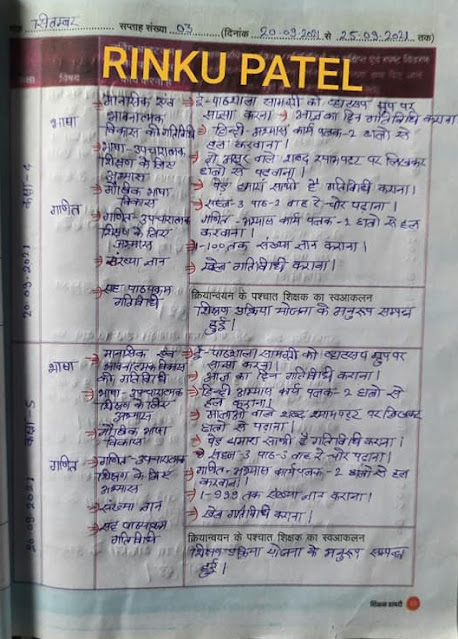 सितम्बर सप्ताह संख्या 03 (दिनांक 20-09-2021 से 25-09-2021 तक)
RINKU PATEL
विषय
कक्षा-4
20-09-2021
भाषा
→ मानसिक एवं भावनात्मक विकास की गतिविधि
→ ई-पाठशाला सामग्री को व्हाट्सएप ग्रुप पर साझा करना। → आज का दिन गतिविधि कराना
→ भाषा-उपचारात्मक शिक्षण के लिए अभ्यास
→ हिन्दी-अभ्यास कार्य पत्रक-2 छात्रों से हल करवाना।
→ दो अक्षर वाले शब्द श्यामपट्ट पर लिखकर छात्रों से पढवाना।
→ मौखिक भाषा विकास
→ पेड़ हमारा साथी है गतिविधि कराना।
→ 3 पाठ-2 वाह रे चोर पढाना।
गणित
→ गणित-उपचारात्मक शिक्षण के लिए अभ्यास
गणित-अभ्यास कार्य पत्रक-2 छात्रों से हल करवाना।
→ संख्या ज्ञान
1-100 तक संख्या ज्ञान कराना।
→ सह पाठ्यक्रम गतिविधि
→ खेल गतिविधि कराना।
क्रियान्वयन के पश्चात शिक्षक का स्वआकलन
शिक्षण प्रक्रिया योजना के अनुरूप सम्पन्न हुई।
कक्षा-5
20-09-2021
भाषा
→ मानसिक एवं भावनात्मक विकास की गतिविधि
→ ई-पाठशाला सामग्री को व्हाट्सएप ग्रुप पर साझा करना।
→ आज का दिन गतिविधि कराना।
→ भाषा-उपचारात्मक शिक्षण के लिए अभ्यास
→ हिन्दी अभ्यास कार्य पत्रक-2 छात्रों से हल कराना।
→ मात्राओं वाले शब्द श्यामपट्ट पर लिखकर छात्रों से पढाना।
→ मौखिक भाषा विकास
→ पेड़ हमारा साथी है गतिविधि कराना।
→ 3 पाठ-3 वाह रे चोर पढाना।
गणित
→ गणित-उपचारात्मक शिक्षण के लिए अभ्यास
→ गणित-अभ्यास कार्यपत्रक-2 छात्रों से हल करवाना।
→ संख्या ज्ञान
→ 1-999 तक संख्या ज्ञान कराना।
→ सह पाठ्यक्रम गतिविधि
→ खेल गतिविधि कराना।
क्रियान्वयन के पश्चात शिक्षक का स्वआकलन
शिक्षण प्रक्रिया योजना के अनुरूप सम्पन्न हुई।
शिक्षक डायरी